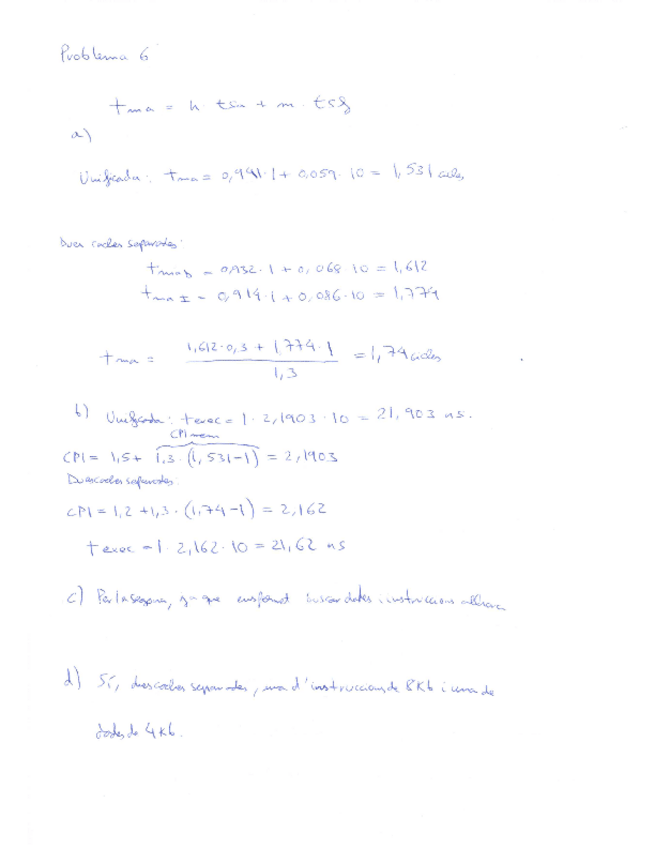 Problema 6
tma = h · tsa + m · tsf
a)
Unificada: tma = 0,941·1 + 0,059·10 = 1,531 cicles
Dues caches separades:
tmaD = 0,932·1 + 0,068·10 = 1,612
tmaI = 0,914·1 + 0,086·10 = 1,774
tma = (1,612·0,3 + 1,774·1) / 1,3 = 1,74 cicles
b) Unificada: texec = 1 · 2,1903 · 10 = 21,903 ns.
CPImem
CPI = 1,5 + 1,3 · (1,531-1) = 2,1903
Dues caches separades:
CPI = 1,2 + 1,3 · (1,74-1) = 2,162
texec = 1 · 2,162 · 10 = 21,62 ns
c) Per la segona, ja que ens permet buscar dades i instruccions
d) Sí, dues caches separades, una d'instruccions de 8Kb i una de
dades de 4Kb.